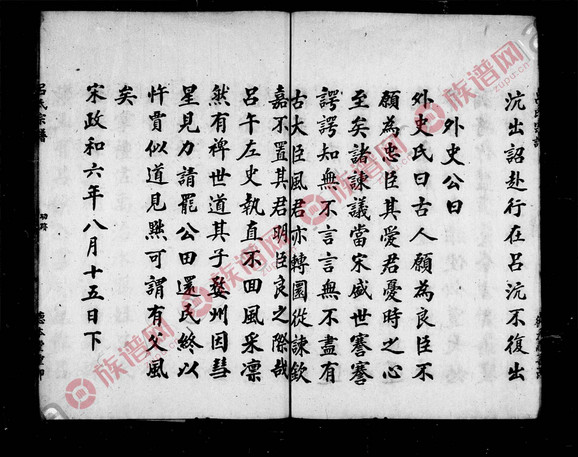 沆出詔赴行在呂沆不復出
外史公曰
外史氏曰古人願為良臣不
願為忠臣其愛君憂時之心
至矣諸諫議當宋盛世謇謇
諤諤知無不言言無不盡有
古大臣風君亦轉圜從諫欽
嘉不置其君明臣良之際哉
呂午左史執直不回風采凛
然有裨世道其子婺州因彗
星見力請罷公田還民終以
忤賈似道見黜可謂有父風
矣
宋政和六年八月十五日下
呂氏宗譜
族谱网
族谱网
族谱网
族谱网